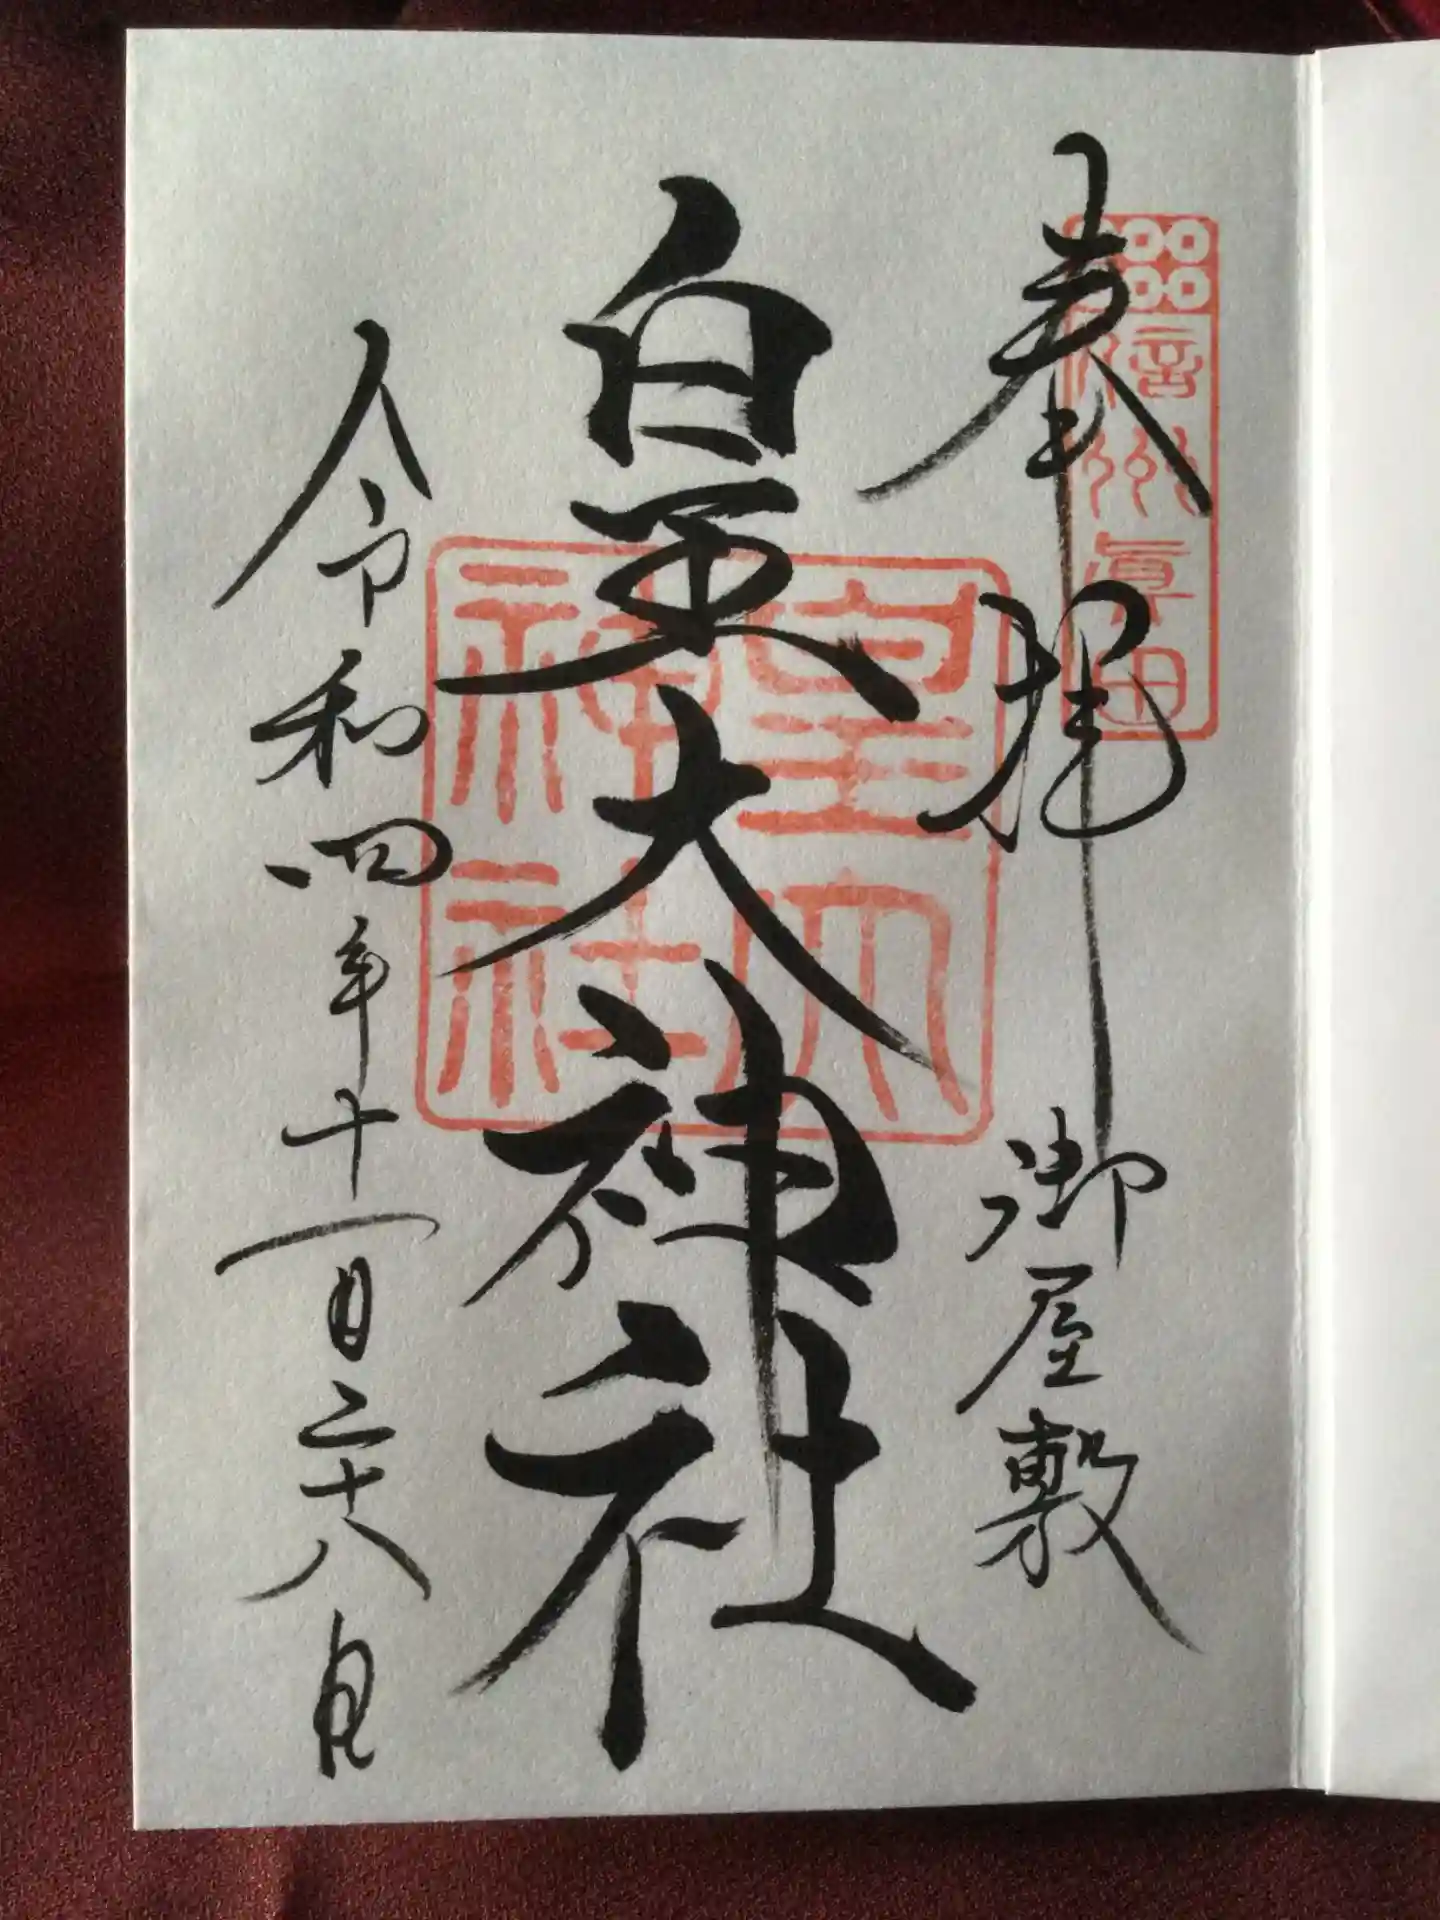 奉拝 御屋敷
信州眞田
皇大神社
皇大
神社
令和四年十一月二十八日